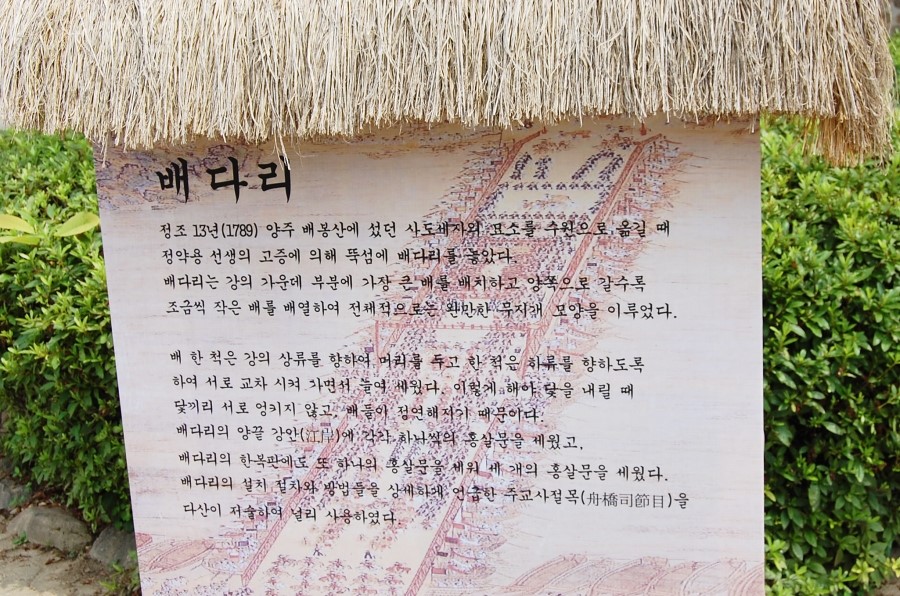 배다리
정조 13년(1789) 양주 배봉산에 섰던 사도세자의 묘소를 수원으로 옮길 때
정약용 선생의 고증에 의해 뚝섬에 배다리를 놓았다.
배다리는 강의 가운데 부분에 가장 큰 배를 배치하고 양쪽으로 갈수록
조금씩 작은 배를 배열하여 전체적으로는 완만한 무지개 모양을 이루었다.
배 한 척은 강의 상류를 향하여 머리를 두고 한 척은 하류를 향하도록
하여 서로 교차 시켜 가면서 늘여 세웠다. 이렇게 해야 닻을 내릴 때
닻끼리 서로 엉키지 않고, 배들이 정연해지기 때문이다.
배다리의 양끝 강안(江岸)에 각각 하나씩의 홍살문을 세웠고,
배다리의 한복판에도 또 하나의 홍살문을 세워 세 개의 홍살문을 세웠다.
배다리의 설치 절차와 방법들을 상세하게 언급한 주교사절목(舟橋司節目)을
다산이 저술하여 널리 사용하였다.